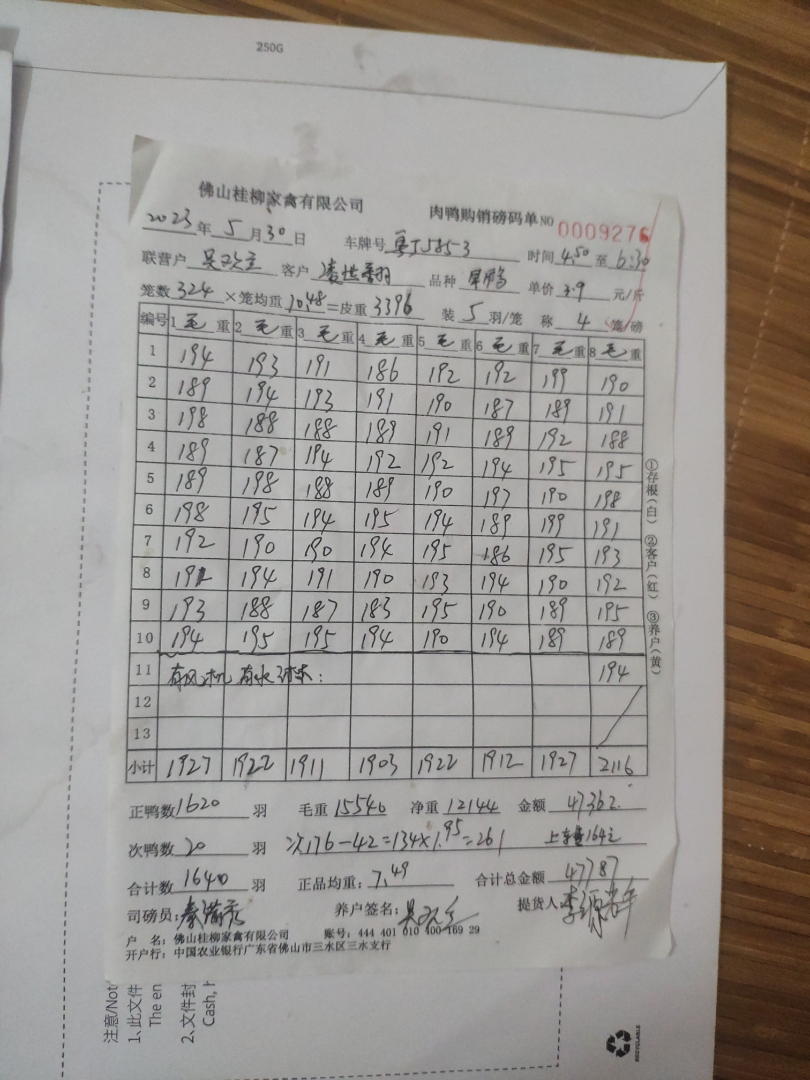 250G
佛山桂柳家禽有限公司 肉鸭购销磅码单NO 0009276
2023年5月30日 车牌号 粤J5853 时间 4:50 至 6:30
联营户 吴欢主 客户 凌世翻 品种 单价 3.9 元/斤
笼数 324 ×笼均重 10.48 =皮重 3396 装 5 羽/笼 称 4 笼/磅
编号 1 毛 重 2 毛 重 3 毛 重 4 毛 重 5 毛 重 6 毛 重 7 毛 重 8 毛 重
1 194 193 191 186 192 192 199 190
2 189 194 193 191 190 187 189 191
3 198 188 188 189 191 189 192 188
4 189 187 194 192 192 194 195 195
5 189 198 188 189 190 197 190 198
6 198 195 194 195 194 189 199 191
7 192 190 190 194 195 186 195 193
8 191 194 191 190 193 194 190 192
9 193 188 187 183 195 190 189 195
10 194 195 195 194 190 194 189 189
11 有风机 有水 : 194
12
13
小计 1927 1922 1911 1903 1922 1912 1927 2116
正鸭数 1620 羽 毛重 15540 净重 12144 金额 47362.
次鸭数 20 羽 次176-42=134×1.95=261 上车费164元
合计数 1640 羽 正品均重: 7.49 合计总金额 47787
司磅员: 养户签名: 提货人
户 名: 佛山桂柳家禽有限公司 账号: 444 401 010 400 169 29
开户行: 中国农业银行广东省佛山市三水区三水支行
①存根(白) ②客户(红) ③养户(黄)
注意/Not
1、此文件
The en
2、文件封
Cash, h
RECYCLABLE